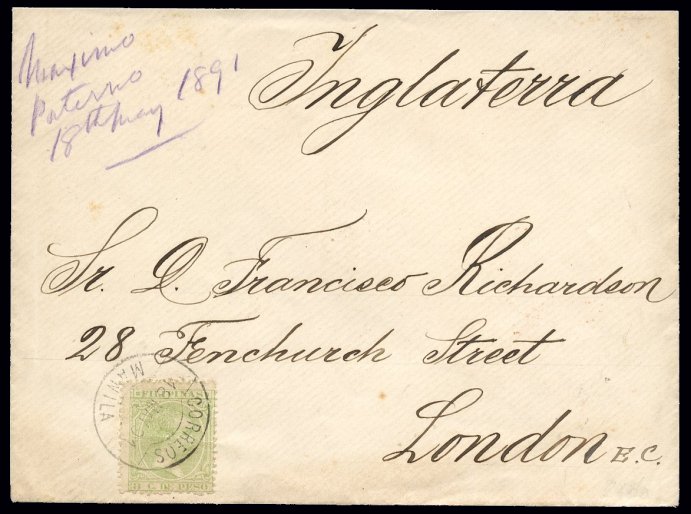 Maximo
Paterno
18th May 1891
Inglaterra
Sr. D. Francisco Richardson
28 Fenchurch Street
London E.C.
CORREOS
MANILA
FILIPINAS
C. DE PESO